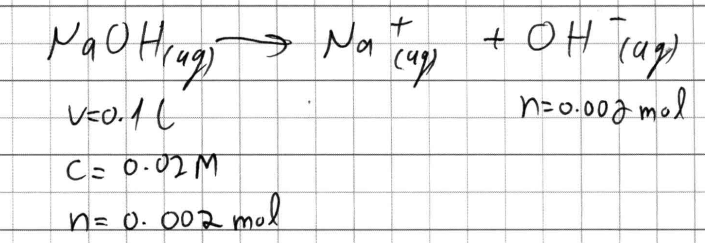 NaOH(aq) → Na⁺(aq) + OH⁻(aq)
V=0.1 L n=0.002 mol
C= 0.02M
n= 0.002 mol